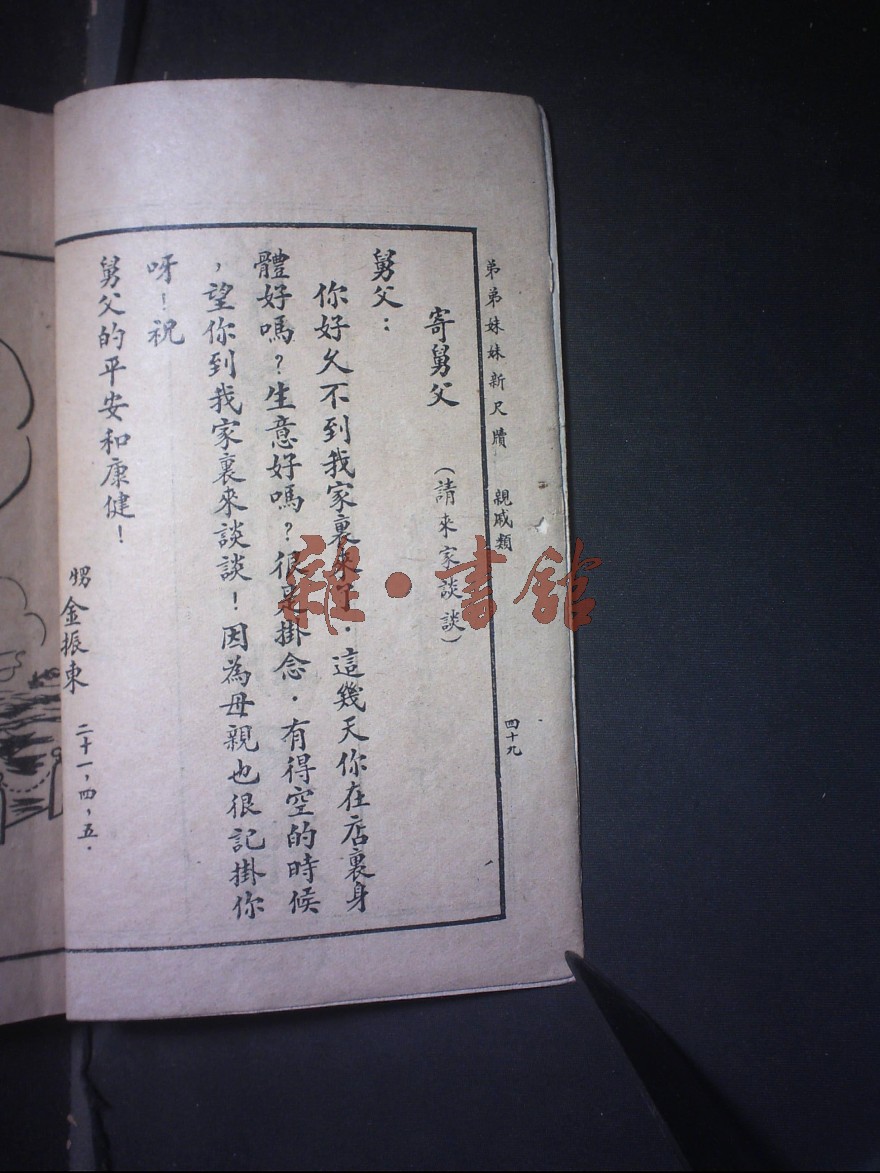 弟弟妹妹新尺牘 親戚類 四十九
寄舅父 (請來家談談)
舅父：
你好久不到我家裏來了．這幾天你在店裏身
體好嗎？生意好嗎？很是掛念．有得空的時候
，望你到我家裏來談談！因為母親也很記掛你
呀！祝
舅父的平安和康健！
甥金振東 二十一，四，五．
雜·書館